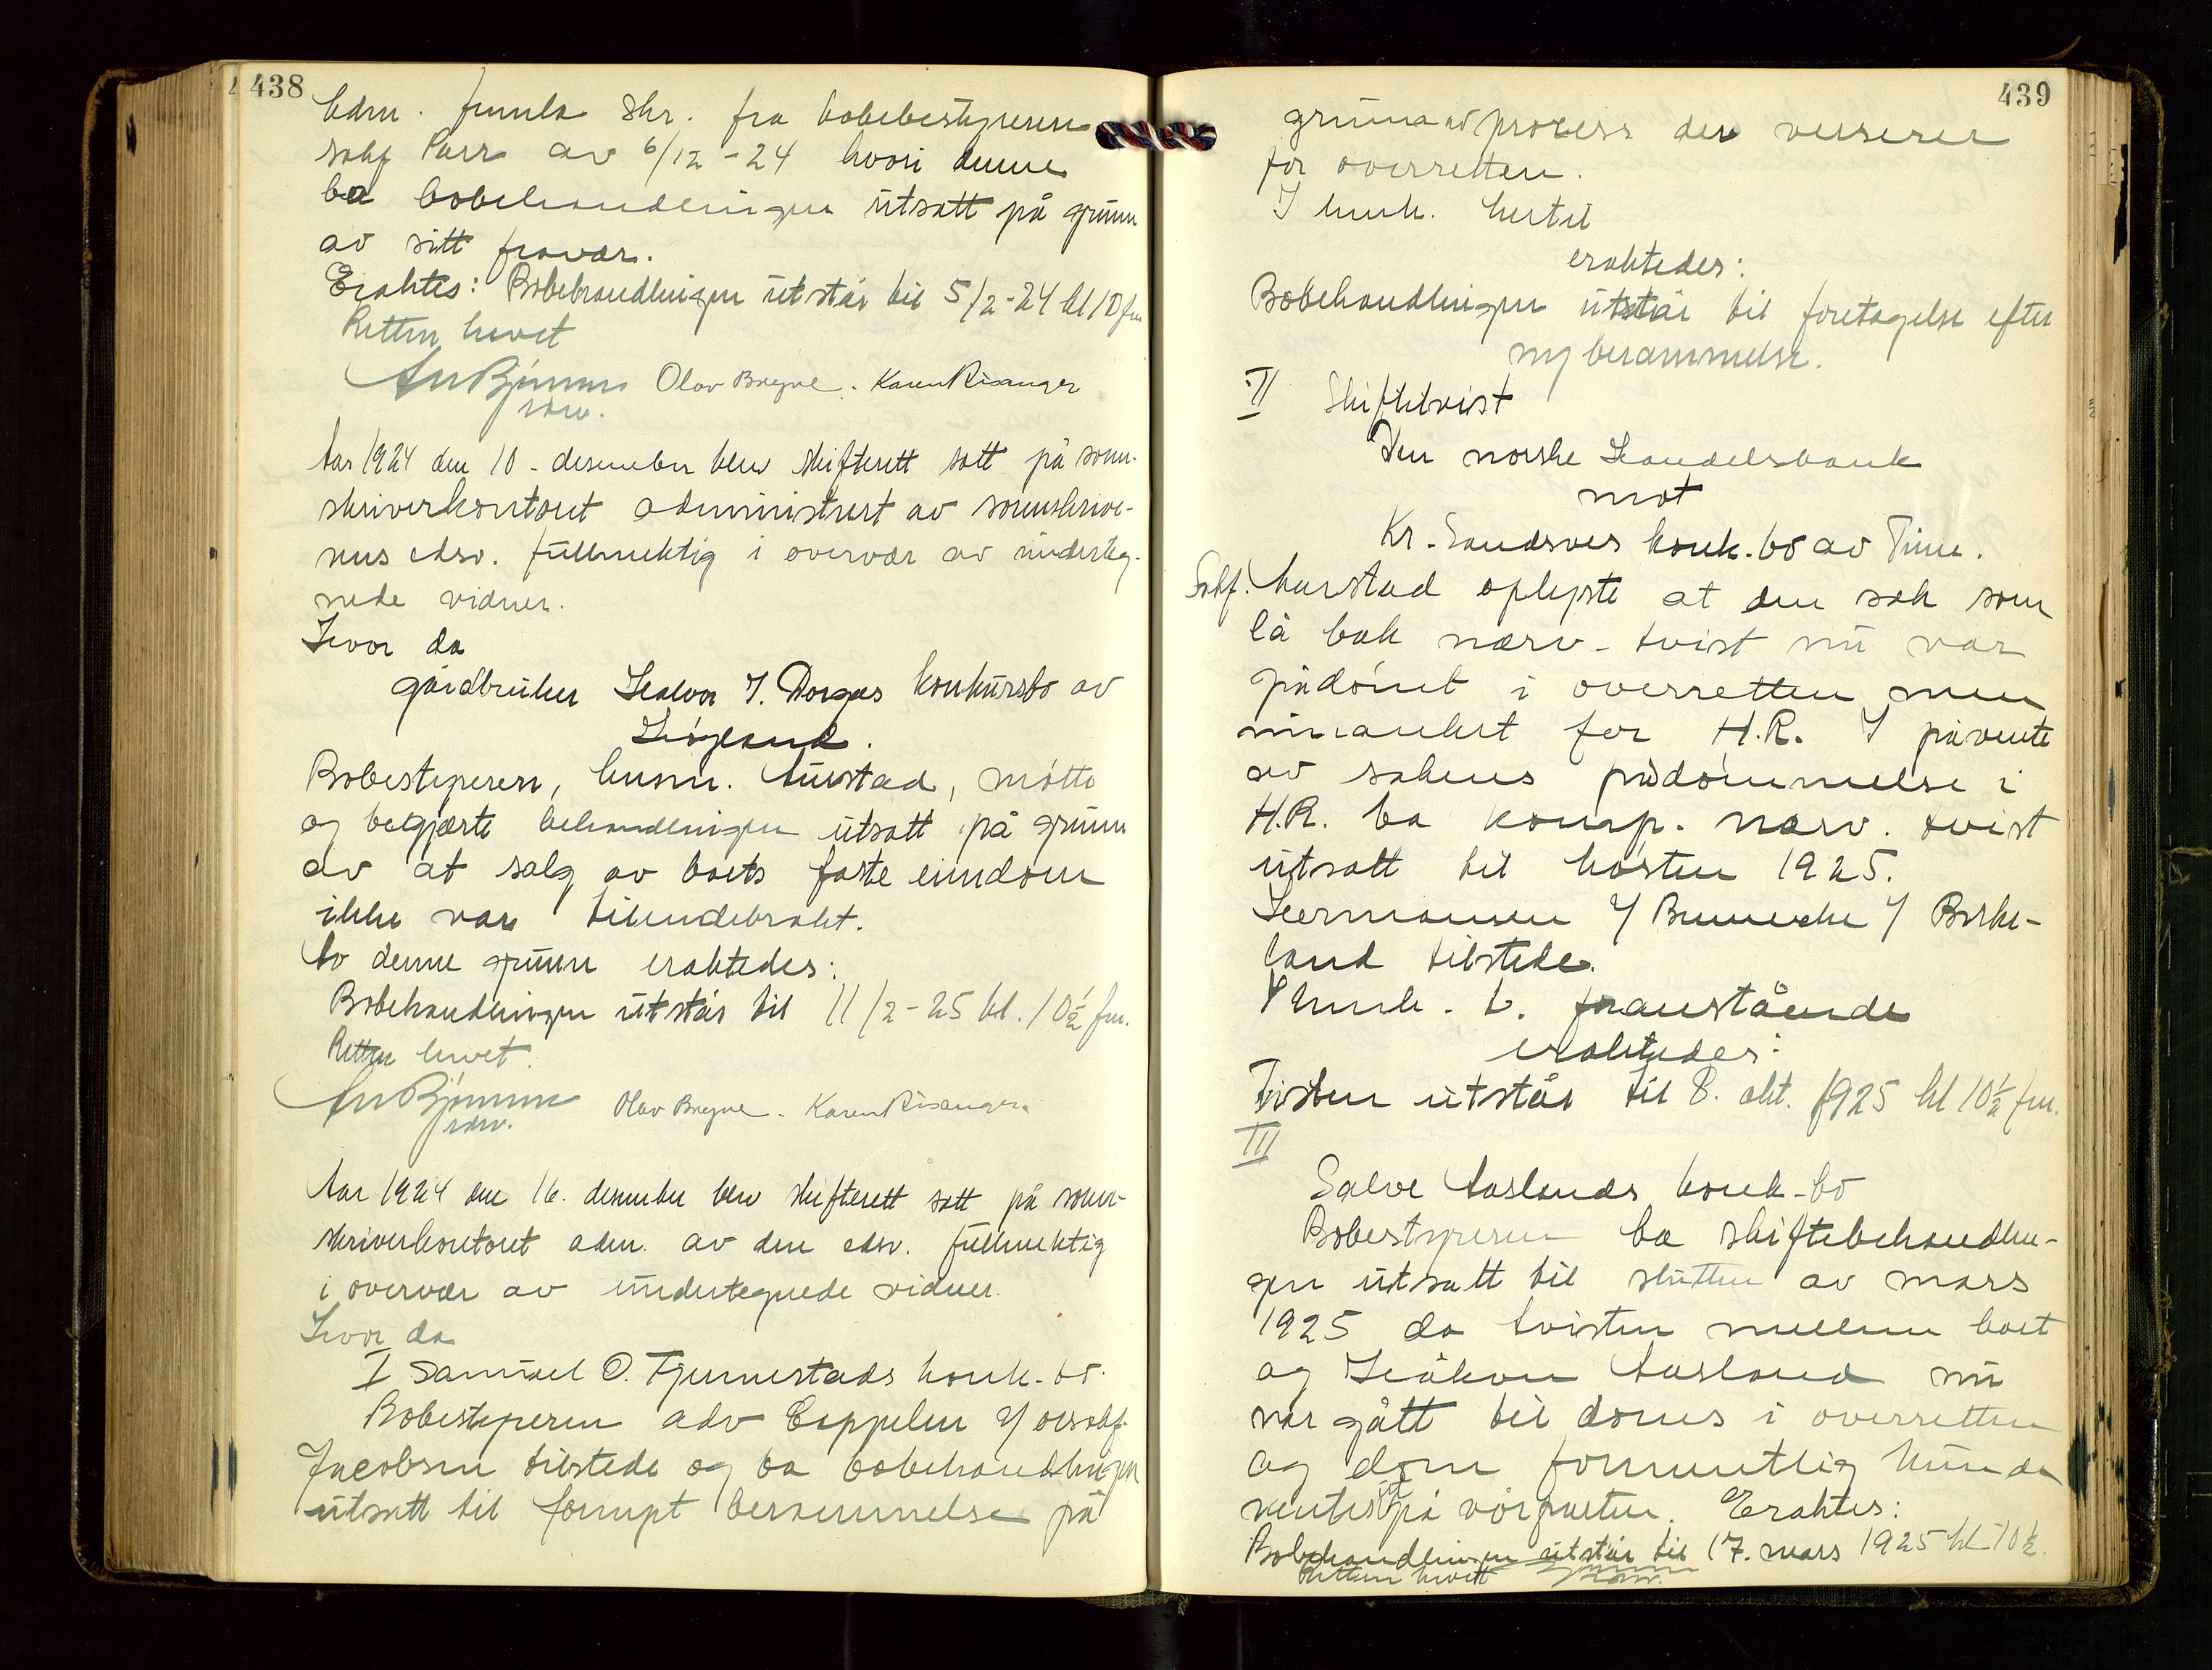 438
Adm. fremla skr. fra bobebestyreren
sakf. Parr av 6/12-24 hvori denne
ba bobehandlingen utsatt på grunn
av sitt fravær.
Eraktes: Bobehandlingen utstår til 5/2-24 kl 10 fm
Retten hevet
Olav Bregne. Karen Risanger
Aar 1924 den 10. desember blev skifterett satt på soren-
skriverkontoret administrert av sorenskrive-
rens edsv. fullmektig i overvær av underteg-
nede vidner.
Hvor da
gårdbruker Halvor T. konkursbo av
Bobestyreren, Aurstad, møtte
og begjærte behandlingen utsatt på grunn
av at salg av boets faste eiendom
ikke var tilendebrakt.
Av denne grunn eraktedes:
Bobehandlingen utstår til 11/2-25 kl. 10½ fm.
Retten hevet.
edsv. Olav Bregne. Karen Risanger.
Aar 1924 den 16. desember blev skifterett satt på soren-
skriverkontoret adm. av den edsv. fullmektig
i overvær av undertegnede vidner.
Hvor da
I Samuel O. Tjennestads konk.bo.
Bobestyreren adv Cappelen v/ orsakf.
Jacobsen tilstede og ba bobehandlingen
utsatt til fornyet berammelse på
439
grunn av prosess der verserer
for overretten.
I henh. hertil
eraktedes:
Bobehandlingen utstår til foretagelse efter
ny berammelse.
II Skiftetvist
Den norske Handelsbank
mot
Kr. Sandsves konk.bo av Time.
Sakf. Aarstad oplyste at den sak som
lå bak nærv. tvist nu var
pådømt i overretten men
innanket for H.R. I påvente
av sakens pådømmelse i
H.R. ba komp. nærv. tvist
utsatt til høsten 1925.
Hermansen v/ Bennecke v/ Birke-
land tilstede.
I henh. t. franstående
eraktedes:
Tvisten utstår til 8. okt. 1925 kl 10½ fm.
III
Salve Aaslands konk.bo
Bobestyreren ba skiftebehandlin-
gen utsatt til slutten av mars
1925 da tvisten mellem boet
og Håkon Aasland nu
var gått til doms i overretten
og dom formentlig kunde
ventes ut på vårparten. Eraktes:
Bobehandlingen utstår til 17. mars 1925 kl 10½.
Retten hevet